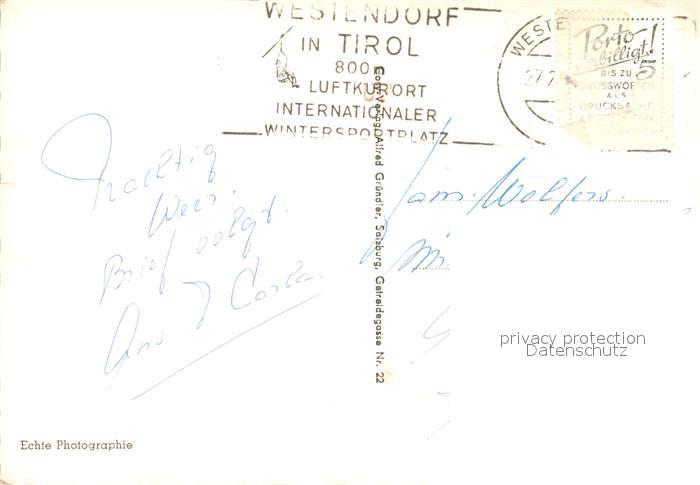 WESTENDORF
IN TIROL
800 m
LUFTKURORT
INTERNATIONALER
WINTERSPORTPLATZ
WESTE
27.7
Porto
verbilligt!
BIS ZU 5
GRUSSWORTEN
ALS
DRUCKSACHE
Prachtig
Weer.
Brief volgt.
Carla.
Fam. Wolfers.
Verlag Alfred Gründler, Salzburg, Getreidegasse Nr. 22
privacy protection
Datenschutz
Echte Photographie